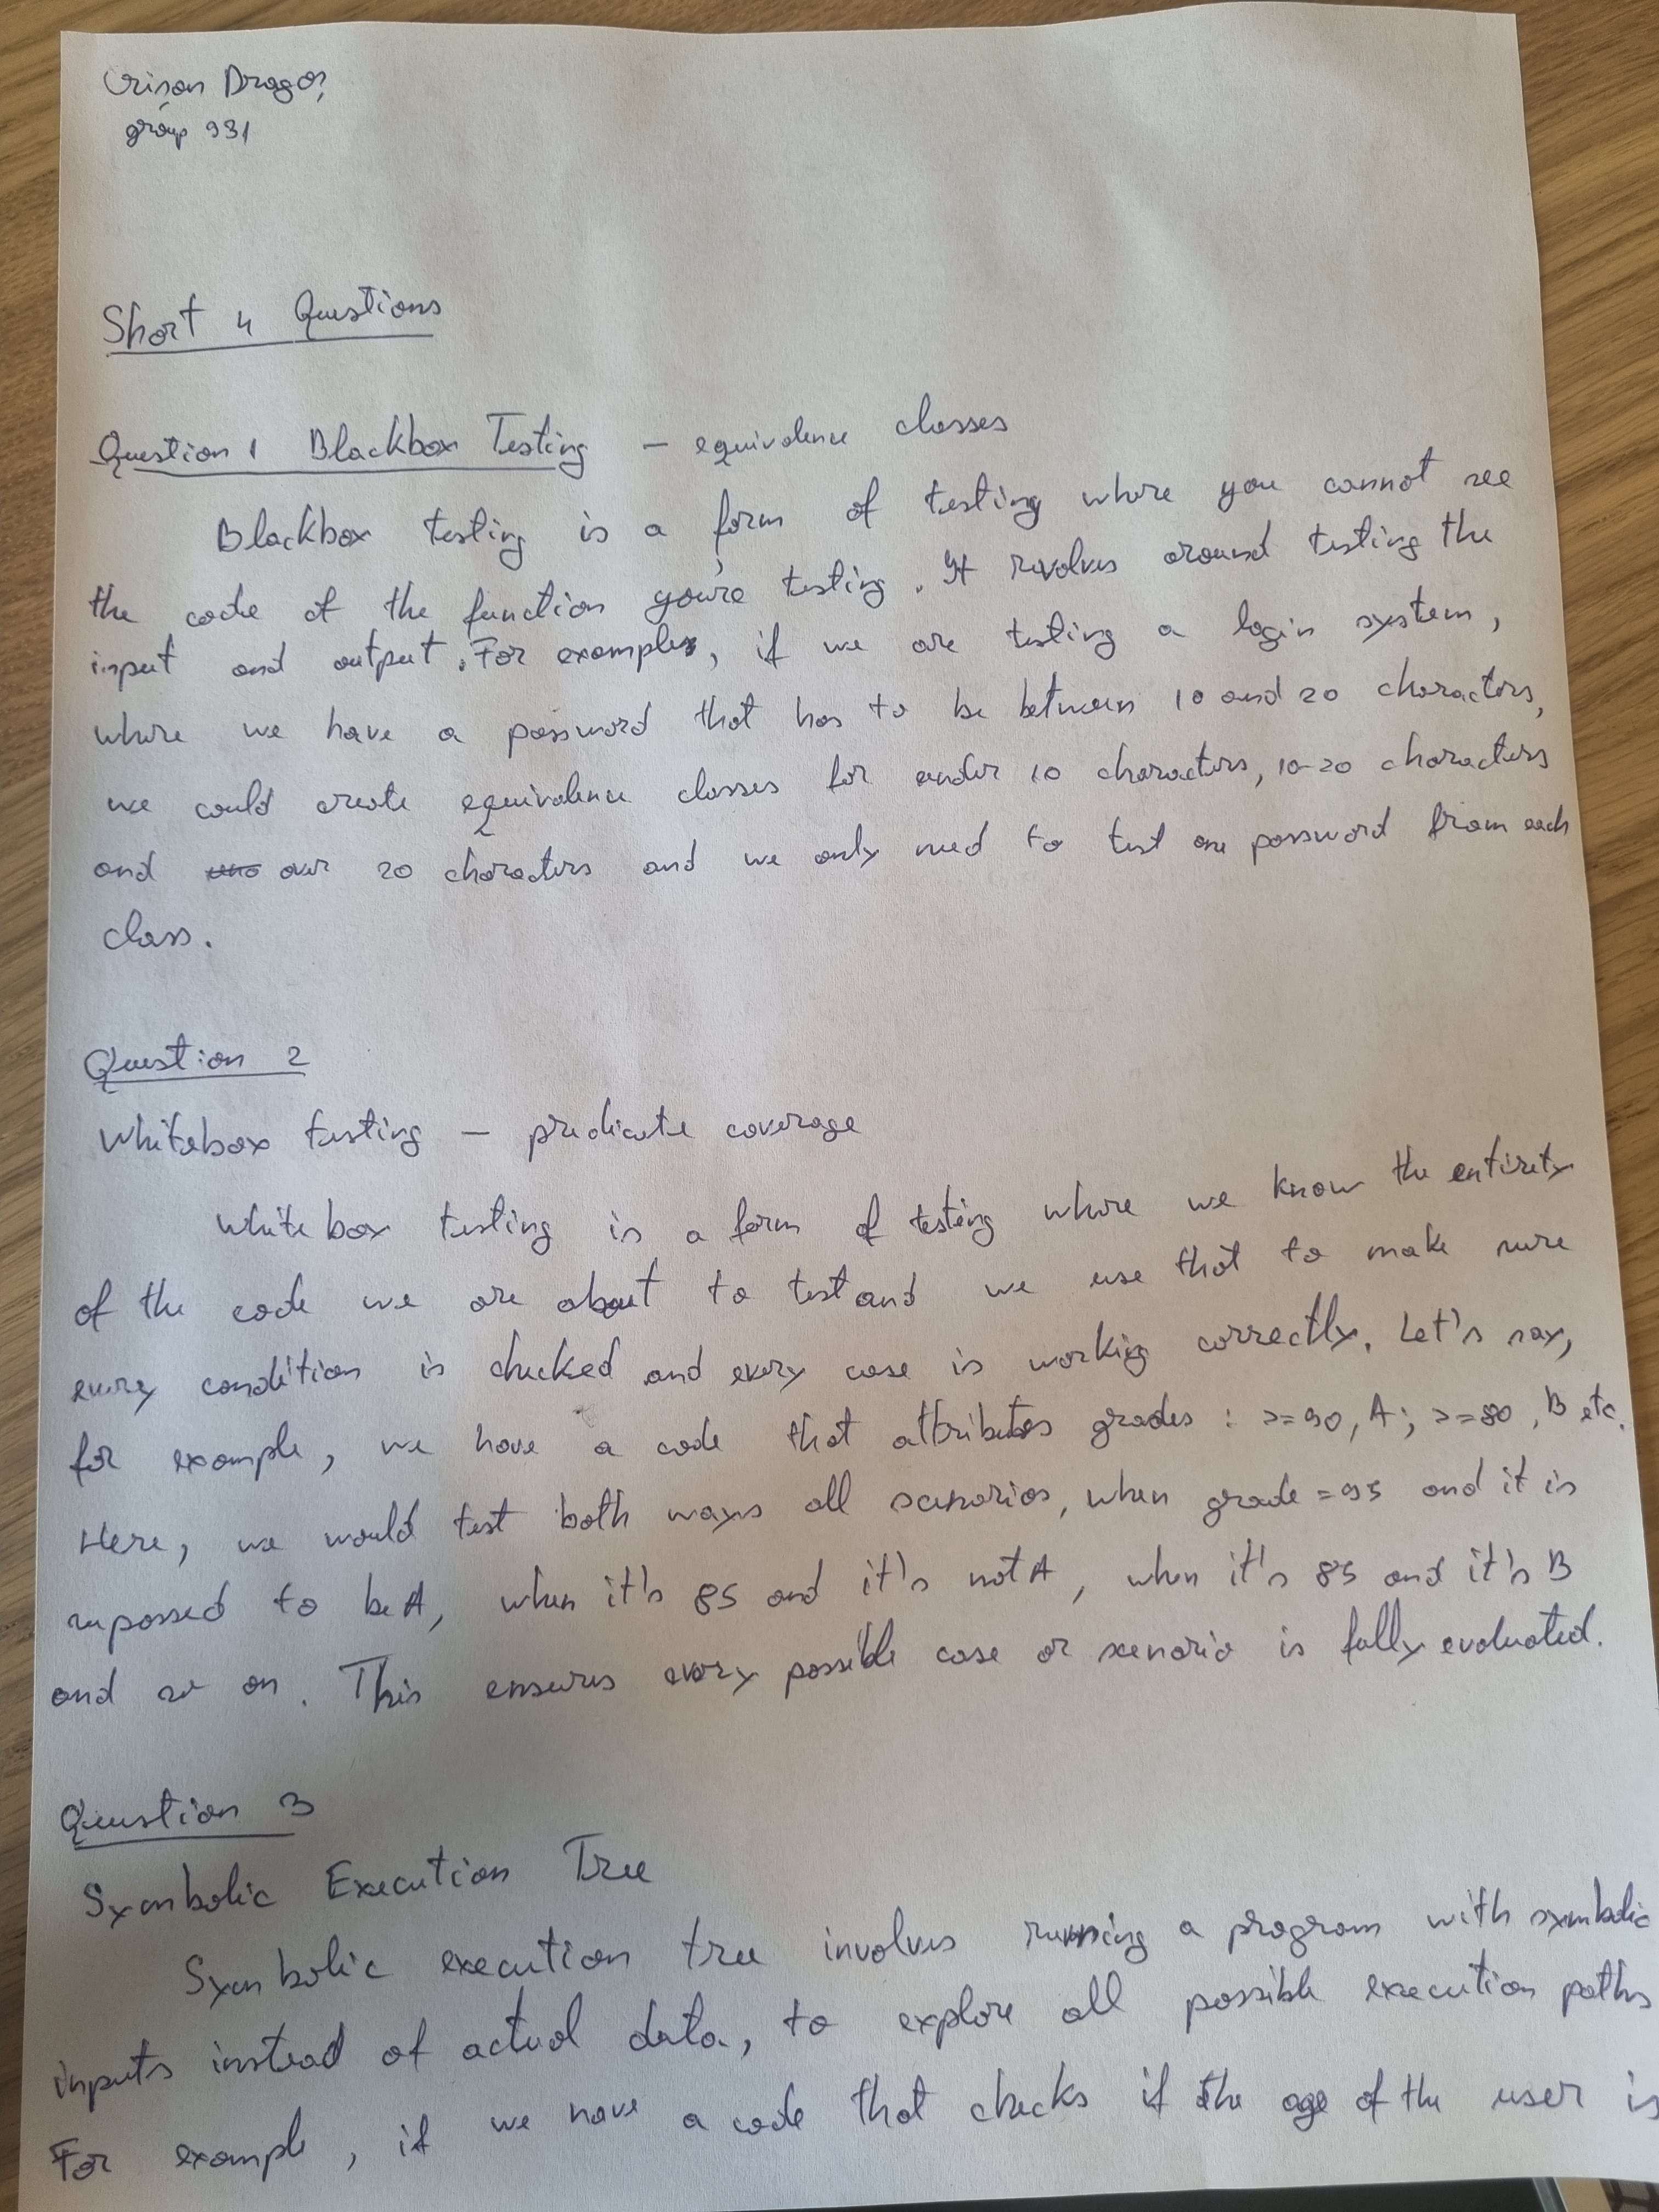 Crișan Dragoș
group 931
Short 4 Questions
Question 1 Blackbox Testing - equivalence classes
Blackbox testing is a form of testing where you cannot see
the code of the function you're testing. It revolves around testing the
input and output. For example, if we are testing a login system,
where we have a password that has to be between 10 and 20 characters,
we could create equivalence classes for under 10 characters, 10-20 characters
and over 20 characters and we only need to test one password from each
class.
Question 2
Whitebox testing - predicate coverage
Whitebox testing is a form of testing where we know the entirety
of the code we are about to test and we use that to make sure
every condition is checked and every case is working correctly. Let's say,
for example, we have a code that attributes grades : >=90, A; >=80, B etc.
Here, we would test both ways all scenarios, when grade = 95 and it is
supossed to be A, when it's 85 and it's not A, when it's 85 and it's B
and so on. This ensures every possible case or scenario is fully evaluated.
Question 3
Symbolic Execution Tree
Symbolic execution tree involves running a program with symbolic
inputs instead of actual data, to explore all possible execution paths
For example, if we have a code that checks if the age of the user is